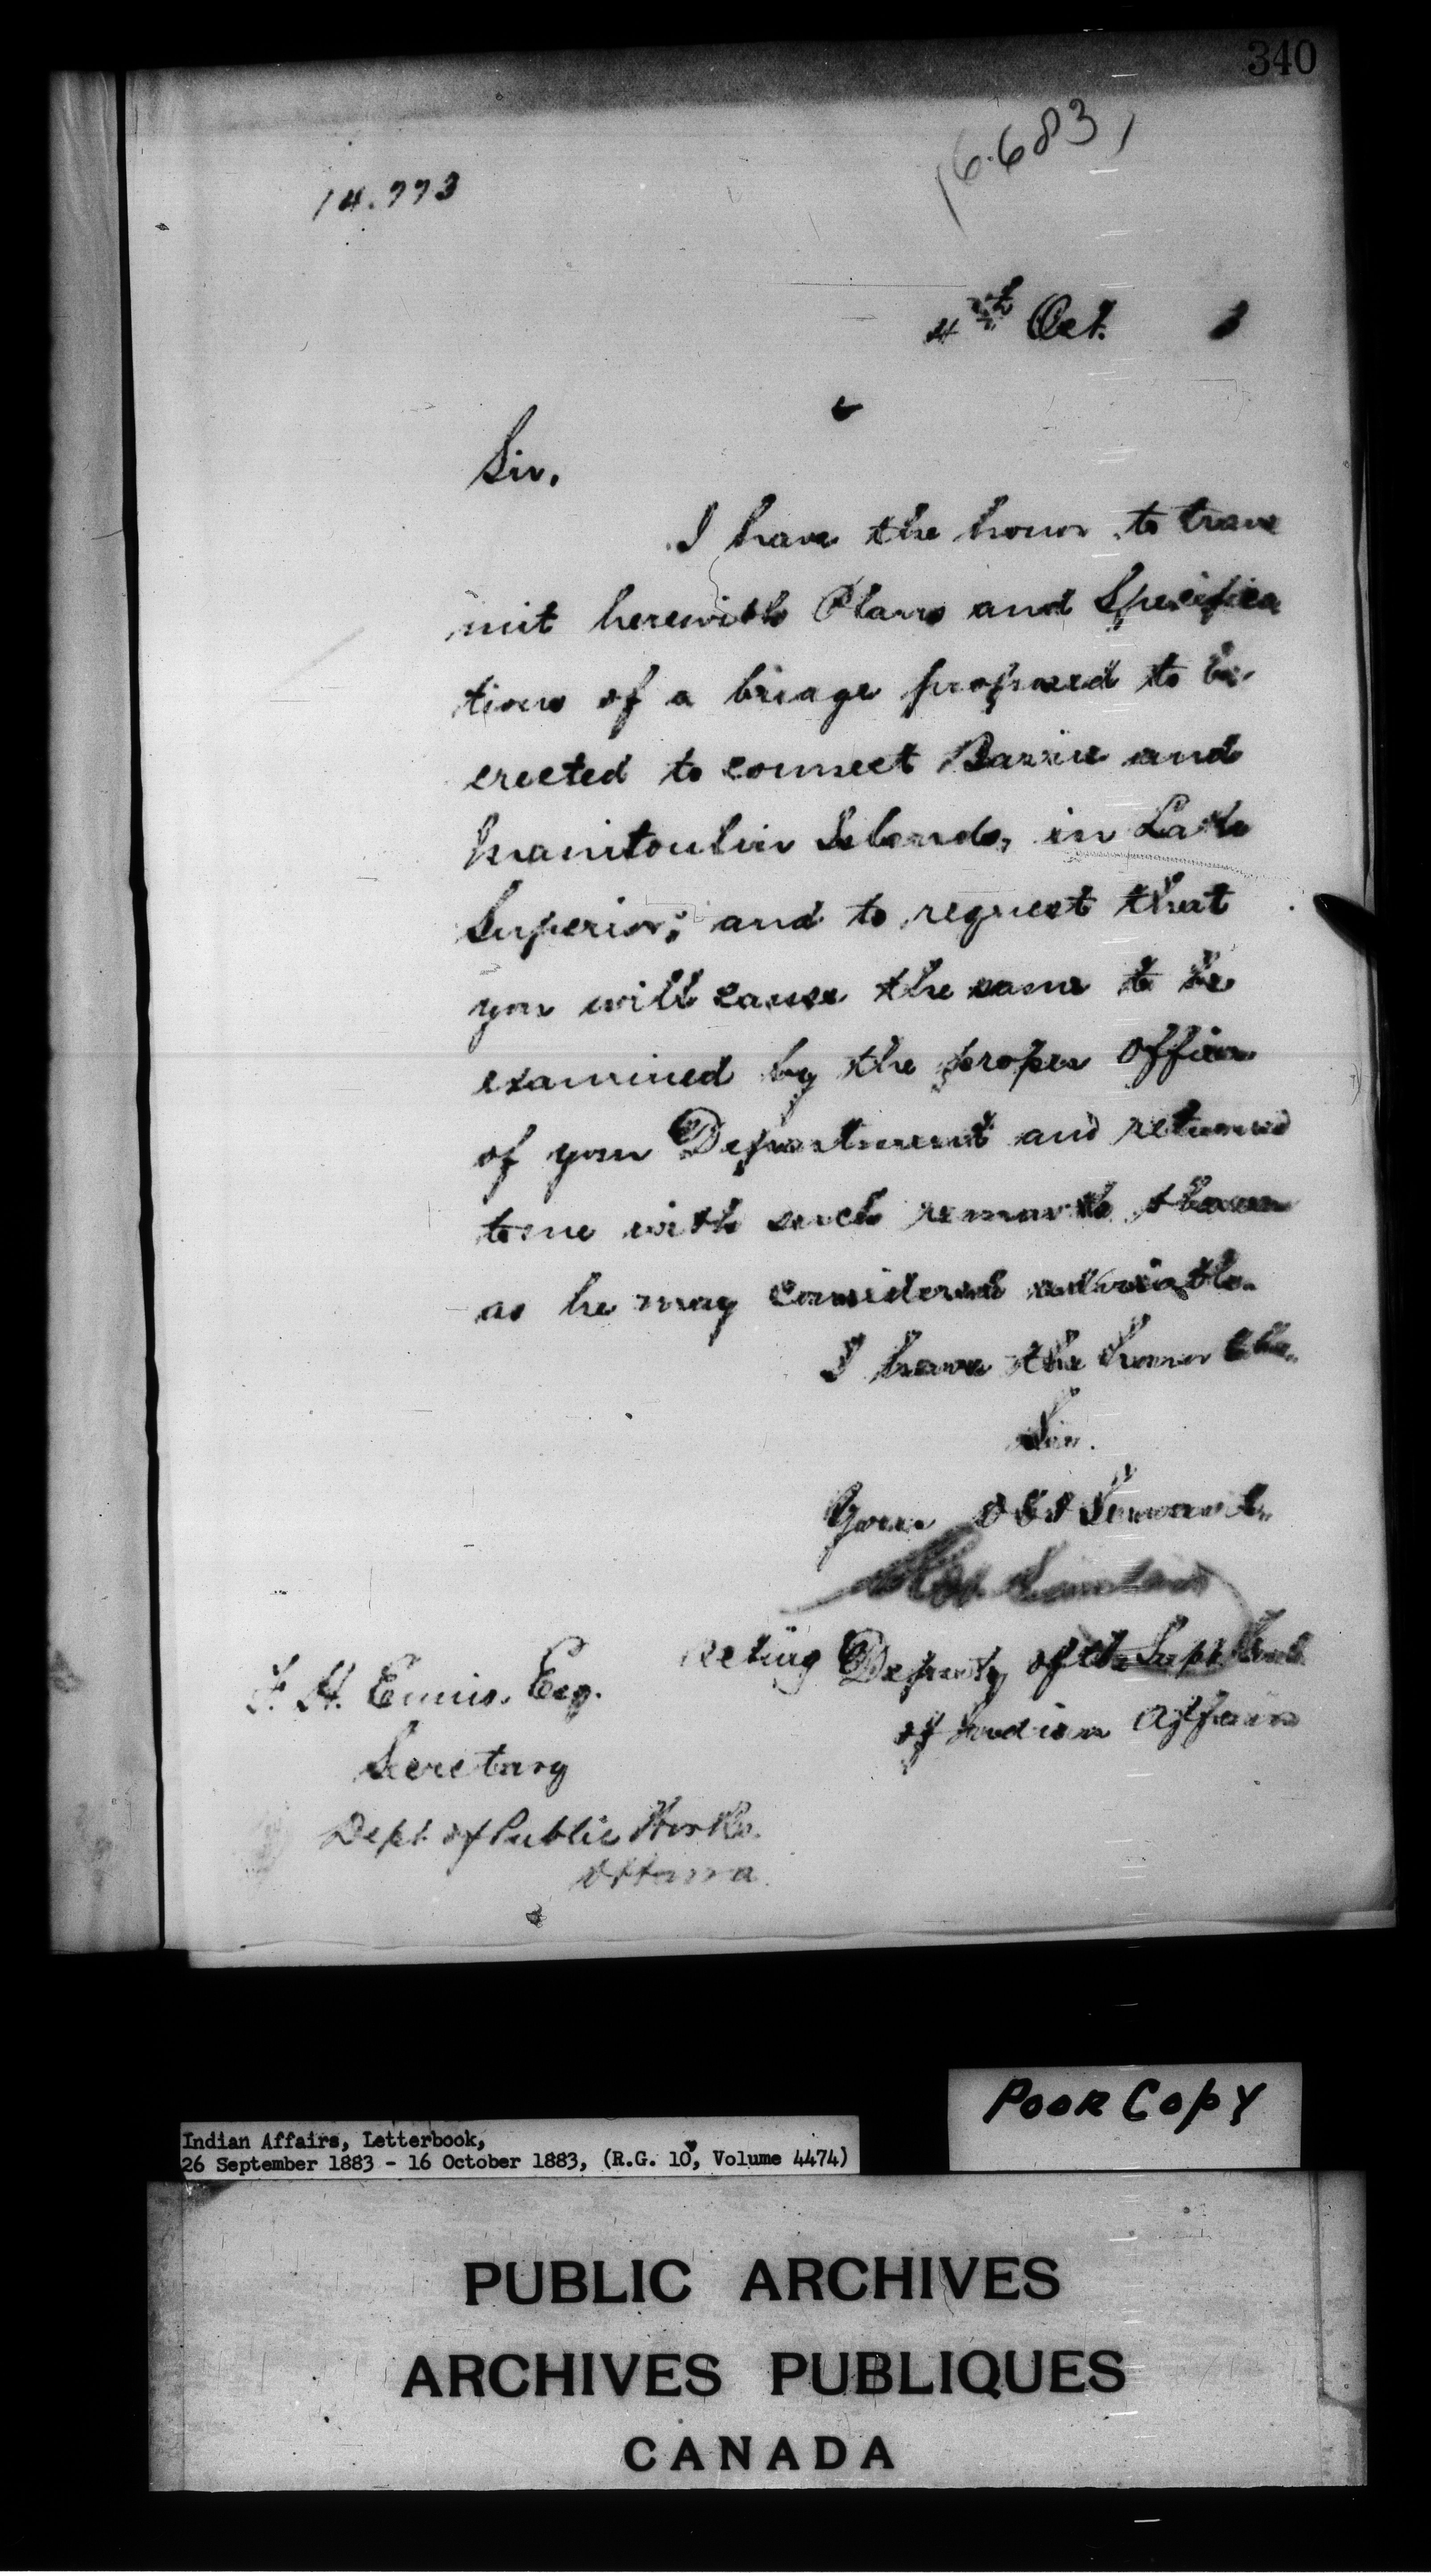 340
16.683
14.773
4th Oct. 3
Sir,
I have the honor to trans
mit herewith Plans and Specifica
tions of a bridge proposed to be
erected to connect Barrie and
Manitoulin Islands, in Lake
Superior; and to request that
you will cause the same to be
examined by the proper Officer
of your Department and returned
to me with such remarks thereon
as he may consider advisable.
I have the honor to be,
Sir.
Your Obt Servant,
Acting Deputy of the Supt. Genl.
of Indian Affairs
F. H. Ennis, Esq.
Secretary
Dept of Public Works.
Ottawa.
POOR COPY
Indian Affairs, Letterbook,
26 September 1883 - 16 October 1883, (R.G. 10, Volume 4474)
PUBLIC ARCHIVES
ARCHIVES PUBLIQUES
CANADA